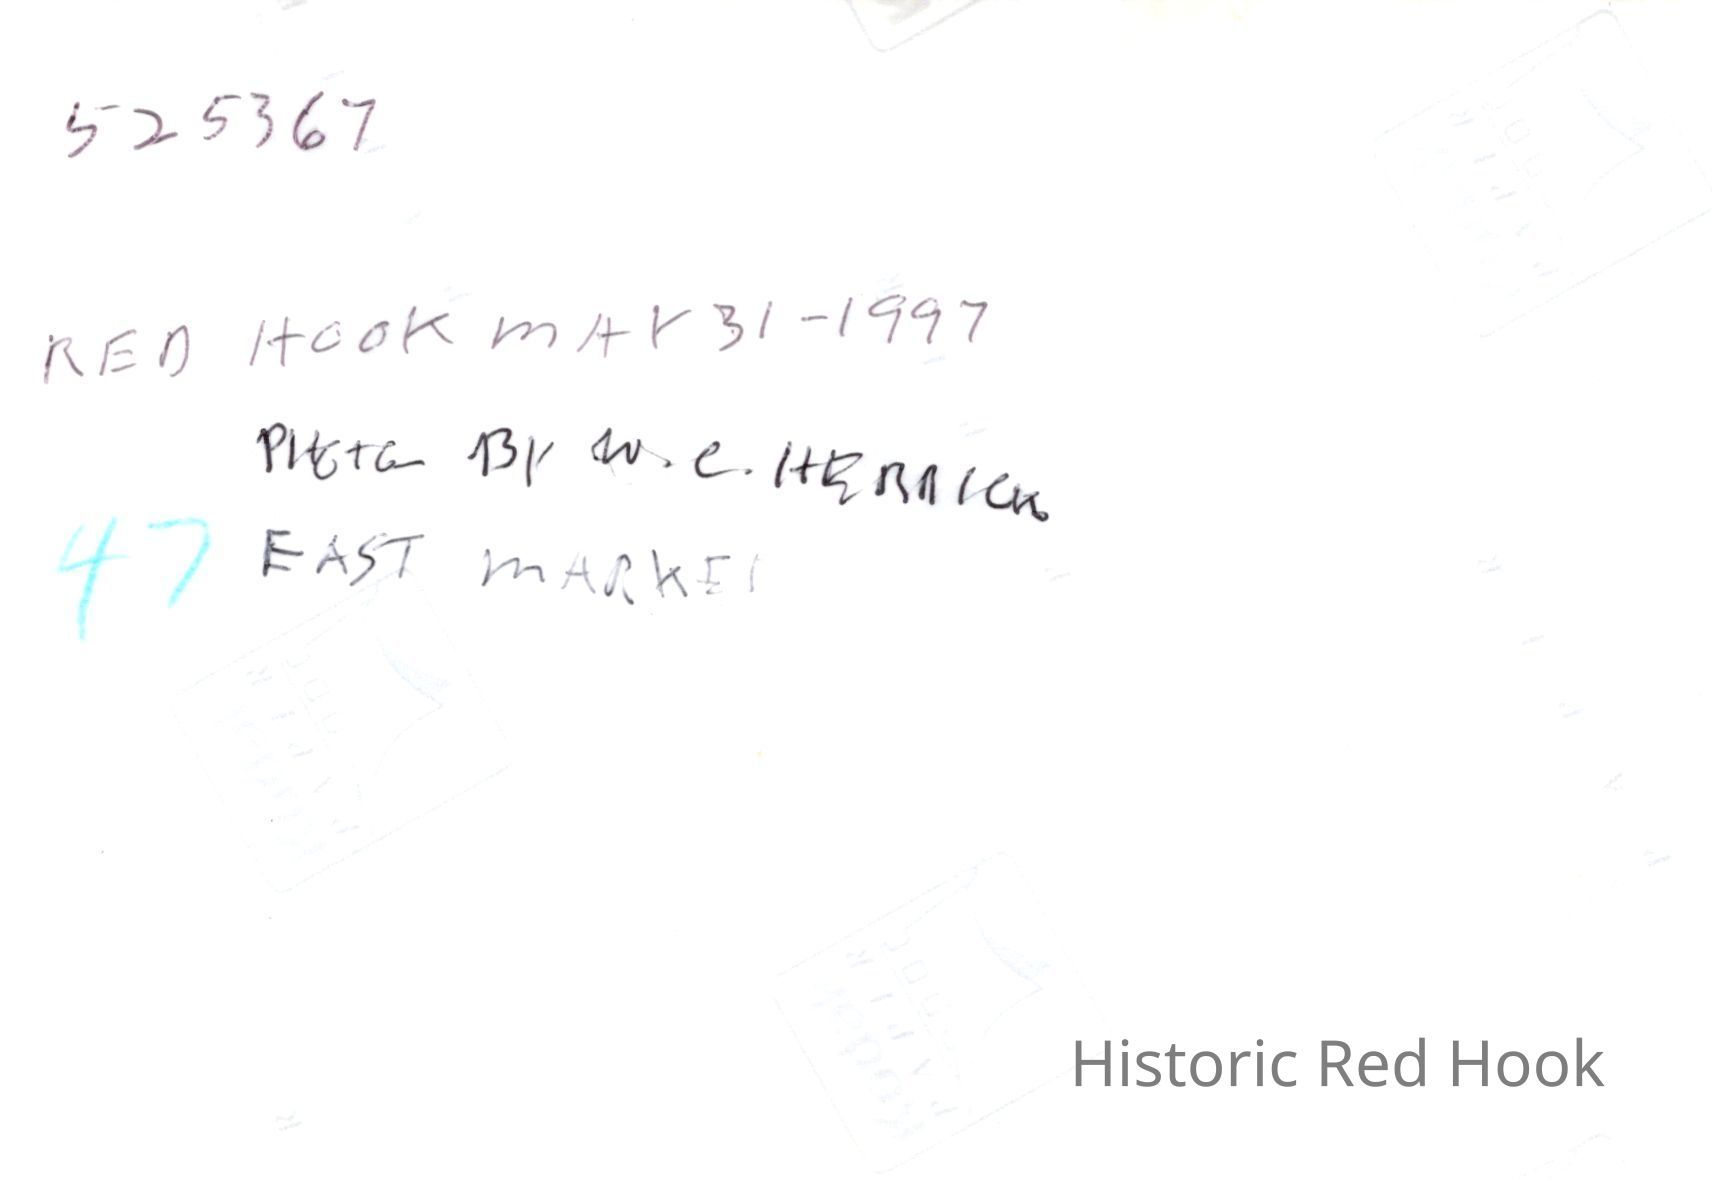 525367
RED HOOK MAY 31-1997
PHOTO BY W.C. HERRICK
47 EAST MARKET
Historic Red Hook